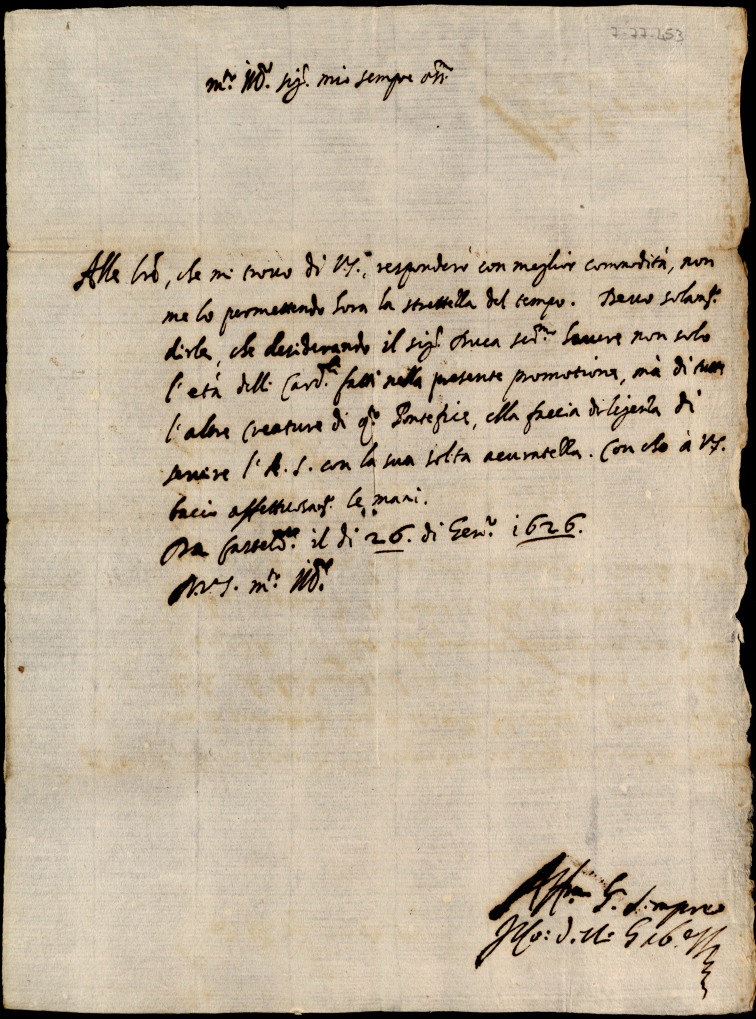 7-77-153
m.to Ill.re sig.r mio sempre oss.mo
Alle lre, che mi trovo di V.S., responderò con meglior commodità, non
me lo permettendo hora la strettezza del tempo. Devo solam.te
dirle, che desiderando il sig.r Duca ser.mo havere non solo
l'età delli Card.li fatti nella presente promotione, mà di tutte
l'altre creature di q.to Pontefice, ella faccia diligenza di
servire l'A. S. con la sua solita accuratezza. Con che à V.S.
bacio affettuosam.te le mani.
Da il di 26. di Gen.ro 1626.
D. V.S. m.to Ill.re
Aff.mo sempre